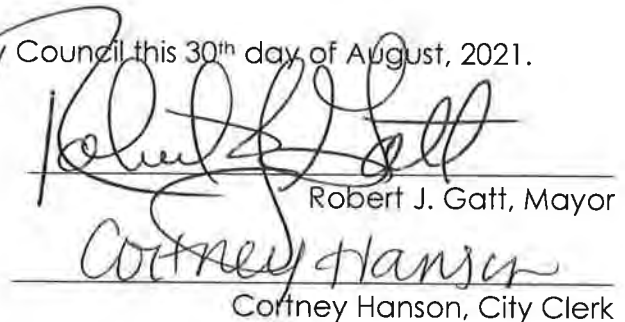 Council this 30th day of August, 2021.
Robert J. Gatt
Robert J. Gatt, Mayor
Cortney Hanson
Cortney Hanson, City Clerk